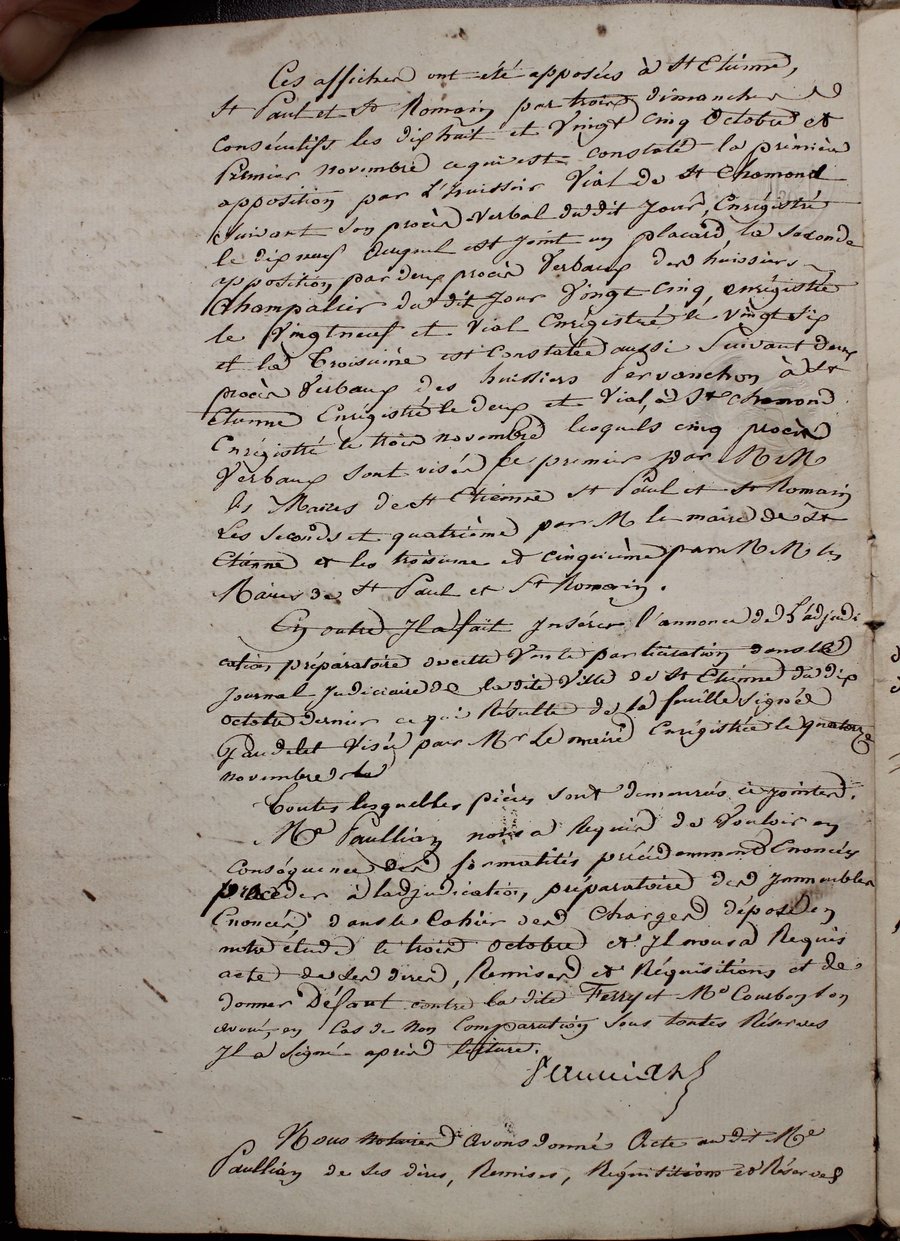 Ces affiches ont été apposées à St Etienne,
St Paul et St Romain par trois dimanches
consécutifs les dix huit et Vingt cinq Octobre et
Premier novembre ce qui est constaté la première
apposition par l'huissier Vial de St Chamond
suivant son procès Verbal du dit Jour, Enrégistré
le dix neuf auquel est joint un placard, la seconde
apposition par deux procès Verbaux des huissiers
Champalier du dit Jour Vingt Cinq, enrégistré
le Vingt neuf et Vial Enrégistré le vingt six
et la Troisième est Constatée aussi Suivant deux
procès Verbaux des huissiers Pervanchon à St
Etienne Enrégistré le deux et Vial, à St Chamond
Enrégistré le trois novembre lesquels cinq procès
Verbaux sont visés le premier par M M
les Maires de St Etienne St Paul et St Romain
Les seconds et quatrième par M le maire de St
Etienne et les troisième et cinquième par M M les
Maires de St Paul et St Romain.
En outre Il a fait Insérer l'annonce de L'adjudi
cation préparatoire de cette Vente par licitation dans le
Journal Judiciaire de la dite Ville de St Etienne du dix
Octobre dernier ce qui Résulte de la feuille signée
Gaudelet Visée par Mr Le maire Enrégistrée le quatorze
novembre
Toutes lesquelles pièces sont demeurées ci jointes.
Me Paullian nous a Requis de Vouloir en
conséquence des formalités précédemment Enoncées
procéder à l'adjudication, préparatoire des Immeubles
Enoncés dans le Cahier des Charges déposé en
notre étude le trois octobre et Il nous a Requis
acte de ses dires, Remises et Réquisitions et de
donner Défaut contre la dite Ferry et Me Courbon son
avoué, en Cas de Non Comparution sous toutes Réserves
Il a signé après lecture.
Paullian
Nous notaires avons donné Acte au dit Me
Paullian de ses dires, Remises, Réquisitions et Réserves